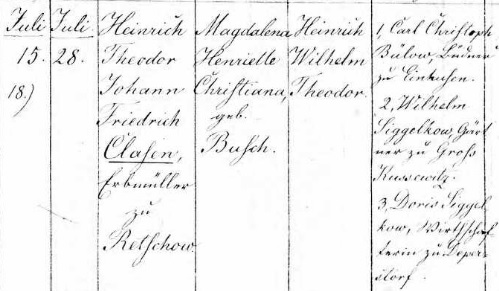 Juli
15.
18.)
Juli
28.
Heinrich
Theodor
Johann
Friedrich
Clasen,
Erbmüller
zu
Retschow.
Magdalena
Henriette
Christiana,
geb.
Busch.
Heinrich
Wilhelm
Theodor.
1, Carl Christoph
Bülow, Büdner
zu
2, Wilhelm
Siggelkow, Gärt
ner zu Groß
Kussewitz.
3, Doris Siggel
kow, Wirthschaf
terin zu Doper
storf.